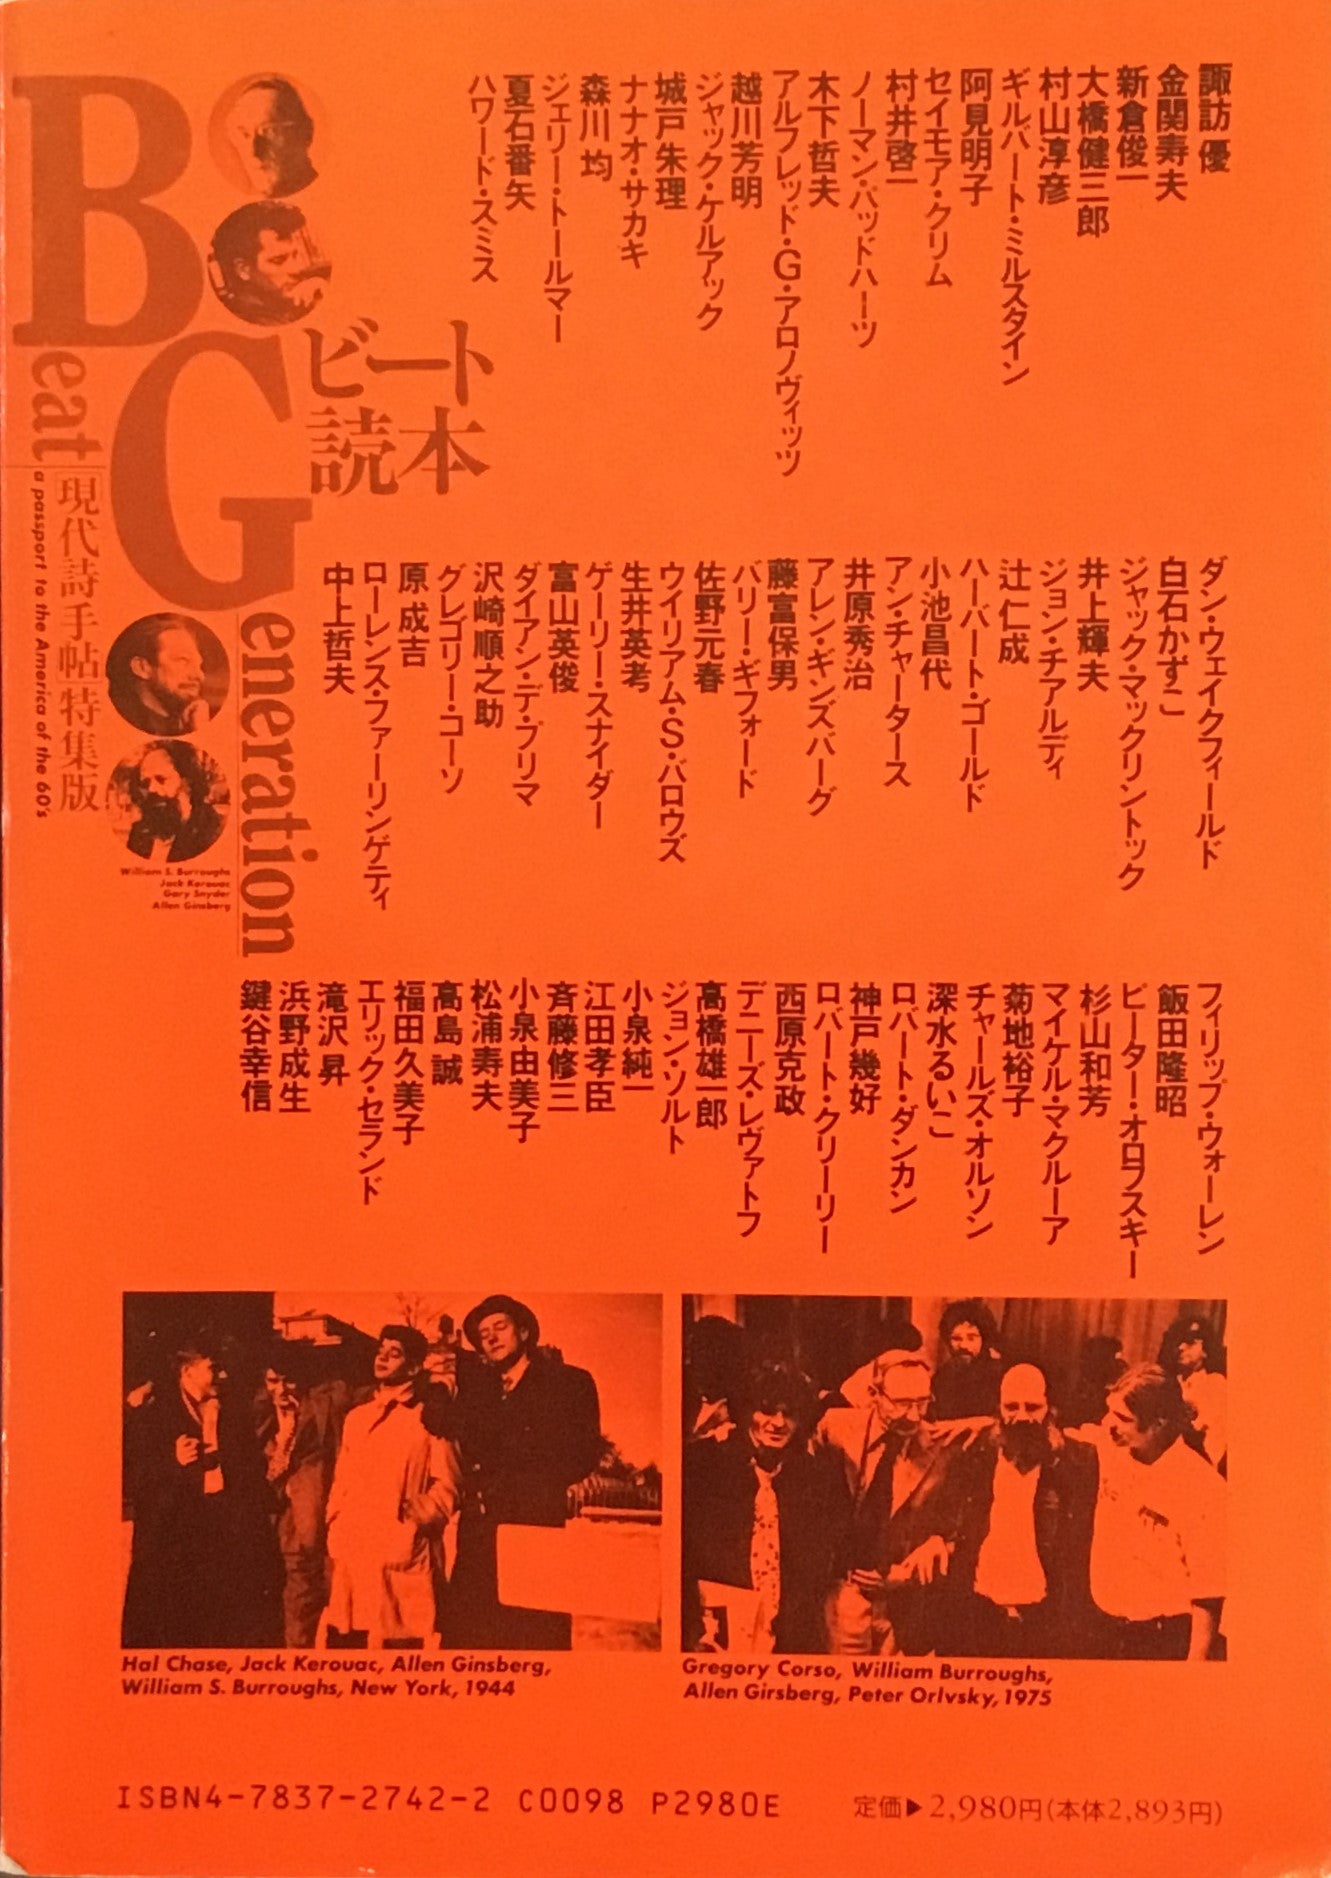 諏訪 優
金関寿夫
新倉俊一
大橋健三郎
村山淳彦
ギルバート・ミルスタイン
阿見明子
セイモア・クリム
村井啓一
ノーマン・パッドハーツ
木下哲夫
アルフレッド・G・アロノヴィッツ
越川芳明
ジャック・ケルアック
城戸朱理
ナナオ・サカキ
森川 均
ジェリー・トールマー
夏石番矢
ハワード・スミス
ビート
読本
Beat
Generation
現代詩手帖特集版
a passport to the America of the 60's
William S. Burroughs
Jack Kerouac
Gary Snyder
Allen Ginsberg
ダン・ウェイクフィールド
白石かずこ
ジャック・マックリントック
井上輝夫
ジョン・チアルディ
辻 仁成
ハーバート・ゴールド
小池昌代
アン・チャータース
井原秀治
アレン・ギンズバーグ
藤富保男
バリー・ギフォード
佐野元春
ウイリアム・S・バロウズ
生井英考
ゲーリー・スナイダー
富山英俊
ダイアン・デ・プリマ
沢崎順之助
グレゴリー・コーソ
原 成吉
ローレンス・ファーリンゲティ
中上哲夫
フィリップ・ウォーレン
飯田隆昭
ピーター・オロフスキー
杉山和芳
マイケル・マクルーア
菊地裕子
チャールズ・オルソン
深水るいこ
ロバート・ダンカン
神戸幾好
ロバート・クリーリー
西原克政
デニーズ・レヴァトフ
高橋雄一郎
ジョン・ソルト
小泉純一
江田孝臣
斉藤修三
小泉由美子
松浦寿夫
高島 誠
福田久美子
エリック・セランド
滝沢 昇
浜野成生
鍵谷幸信
Hal Chase, Jack Kerouac, Allen Ginsberg,
William S. Burroughs, New York, 1944
Gregory Corso, William Burroughs,
Allen Girsberg, Peter Orlvsky, 1975
ISBN4-7837-2742-2 C0098 P2980E
定価▶2,980円(本体2,893円)